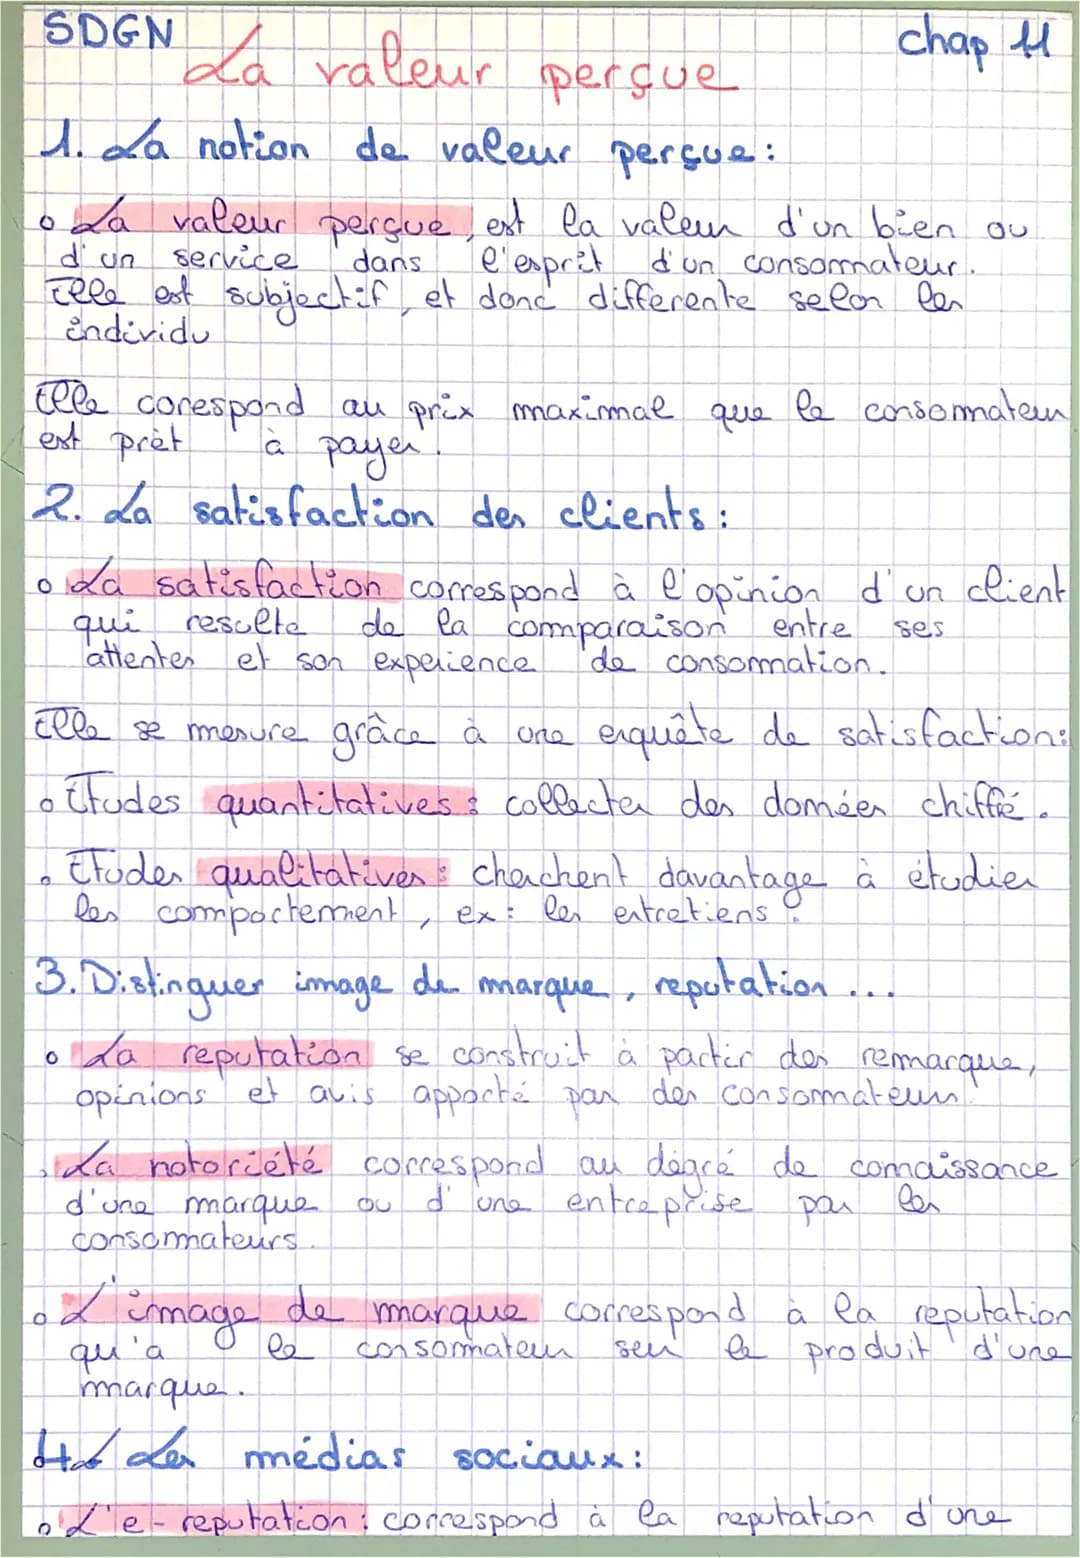 SDGN
chap 11
La valeur perçue
1. La notion de valeur perçue :
La valeur perçue, est la valeur d'un bien ou
d'un service dans l'esprit d'un consommateur.
Elle est subjectif, et donc differente selon les
individu
Elle corespond au prix maximal que le consommateur
est prèt à payer.
2. La satisfaction des clients :
La satisfaction correspond à l'opinion d'un client
qui resulte de la comparaison entre ses
attentes et son experience de consommation.
Elle se mesure grâce à une enquête de satisfaction:
Etudes quantitatives : collecter des données chiffré.
Etudes qualitatives : cherchent davantage à étudier
les comportement, ex : les entretiens.
3. Distinguer image de marque, reputation ...
La reputation se construit à partir des remarque,
opinions et avis apporté par des consommateurs.
La notoriété correspond au dégré de connaissance
d'une marque ou d'une entreprise par les
consommateurs.
L'image de marque correspond à la reputation
qu'a le consommateur seur le produit d'une
marque.
4. Les médias sociaux :
L'e-reputation : correspond à la reputation d'une